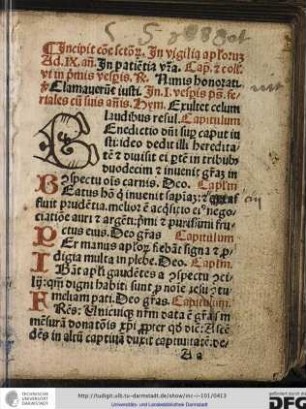 Incipit cõe sctoꝝ. In vigilia aploruꝫ
Ad. IX. añ. In patiẽtia vr̃a. Cap. ⁊ coll'.
vt in p̃mis vesp̃is. Nimis honorati.
Clamauerũt iusti. In. I. vesp̃is ps. fe-
riales cũ suis añis. Hym. Exultet celum
laudibus resul. Capitulum
Enedictio dñi sup̃ caput iu
sti: ideo dedit illi heredita
tẽ ⁊ diuisit ei ptẽ in tribubꝰ
duodecim ⁊ inuenit gr̃aꝫ in
ꝯspectu oĩs carnis. Deo. Capl'm
Eatus hõ q̃ inuenit sapiaꝫ: ⁊
fluit prudẽtia. melior ẽ acq̃sitio eiꝰ nego-
ciatiõe auri ⁊ argẽti: p̃mi ⁊ purissimi fru-
ctus eius. Deo gr̃as Capitulum
Er manus aploꝝ fiebãt signa ⁊ ꝓ-
digia multa in plebe. Deo. Capl'm.
Bãt apl'i gaudẽtes a ꝯspectu ꝯci-
lij: qm̃ digni habiti sunt ꝓ noĩe iesu ꝯtu-
meliam pati. Deo gr̃as. Capitulum.
Fr̃es: Vnicuiqꝫ nr̃m data ẽ gr̃a ẜm
mẽsurã donatiõis xp̃i ꝓpter qd̃ dic̃: Ascẽ-
dẽs in altũ captiuã duxit captiuitatẽ: de-
A a
TECHNISCHE
UNIVERSITÄT
DARMSTADT
http://tudigit.ulb.tu-darmstadt.de/show/inc-i-101/0413
Universitäts- und Landesbibliothek Darmstadt
gefördert durch
DFG